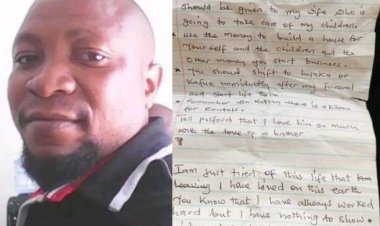 should be given to my wife who is
going to take care of my children.
use the money to build a house for
Yourself and the children and the
Other money you start business.
You should shift to Lusaka or
Kafue immediately after my funeral
and start life
Remember the there is a
for
Tell pilford that I love him so much
with the love of a brother
I am Just tired of this life that
I have loved on this earth
You know that I have always worked
hard but I have nothing to show.